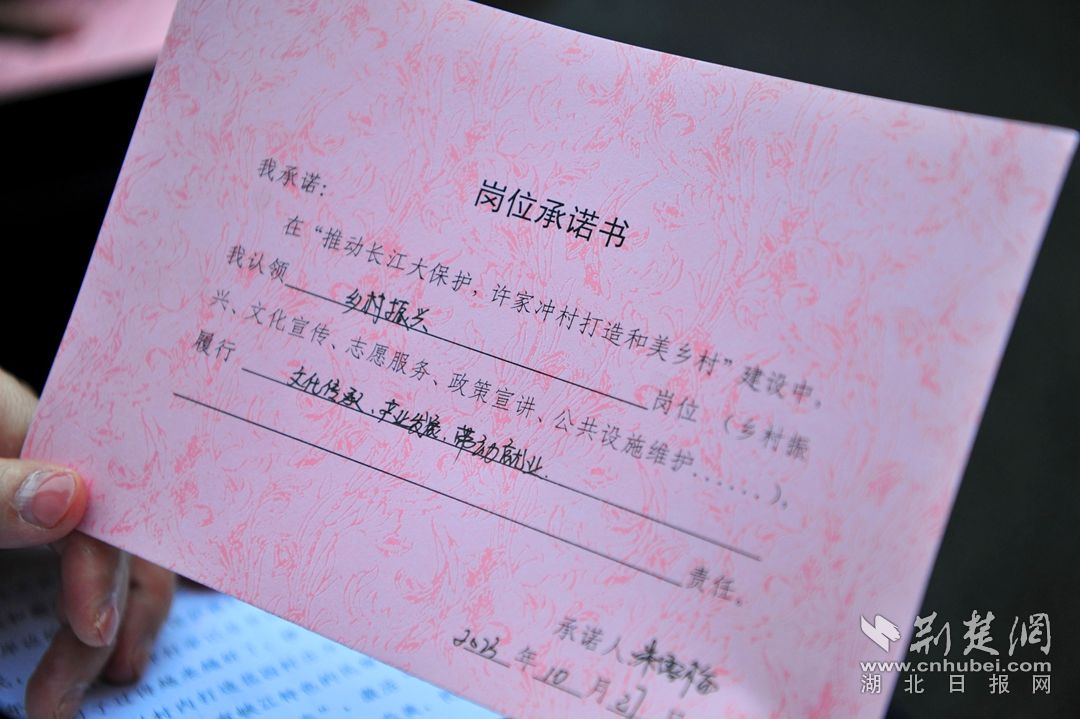 岗位承诺书
我承诺:
在“推动长江大保护，许家冲村打造和美乡村”建设中，
我认领 乡村振兴 岗位（乡村振
兴、文化宣传、志愿服务、政策宣讲、公共设施维护......），
履行 文化传承、产业发展、带动就业.
责任。
承诺人
2023年10月27日
荆楚网
www.cnhubei.com
湖北日报网